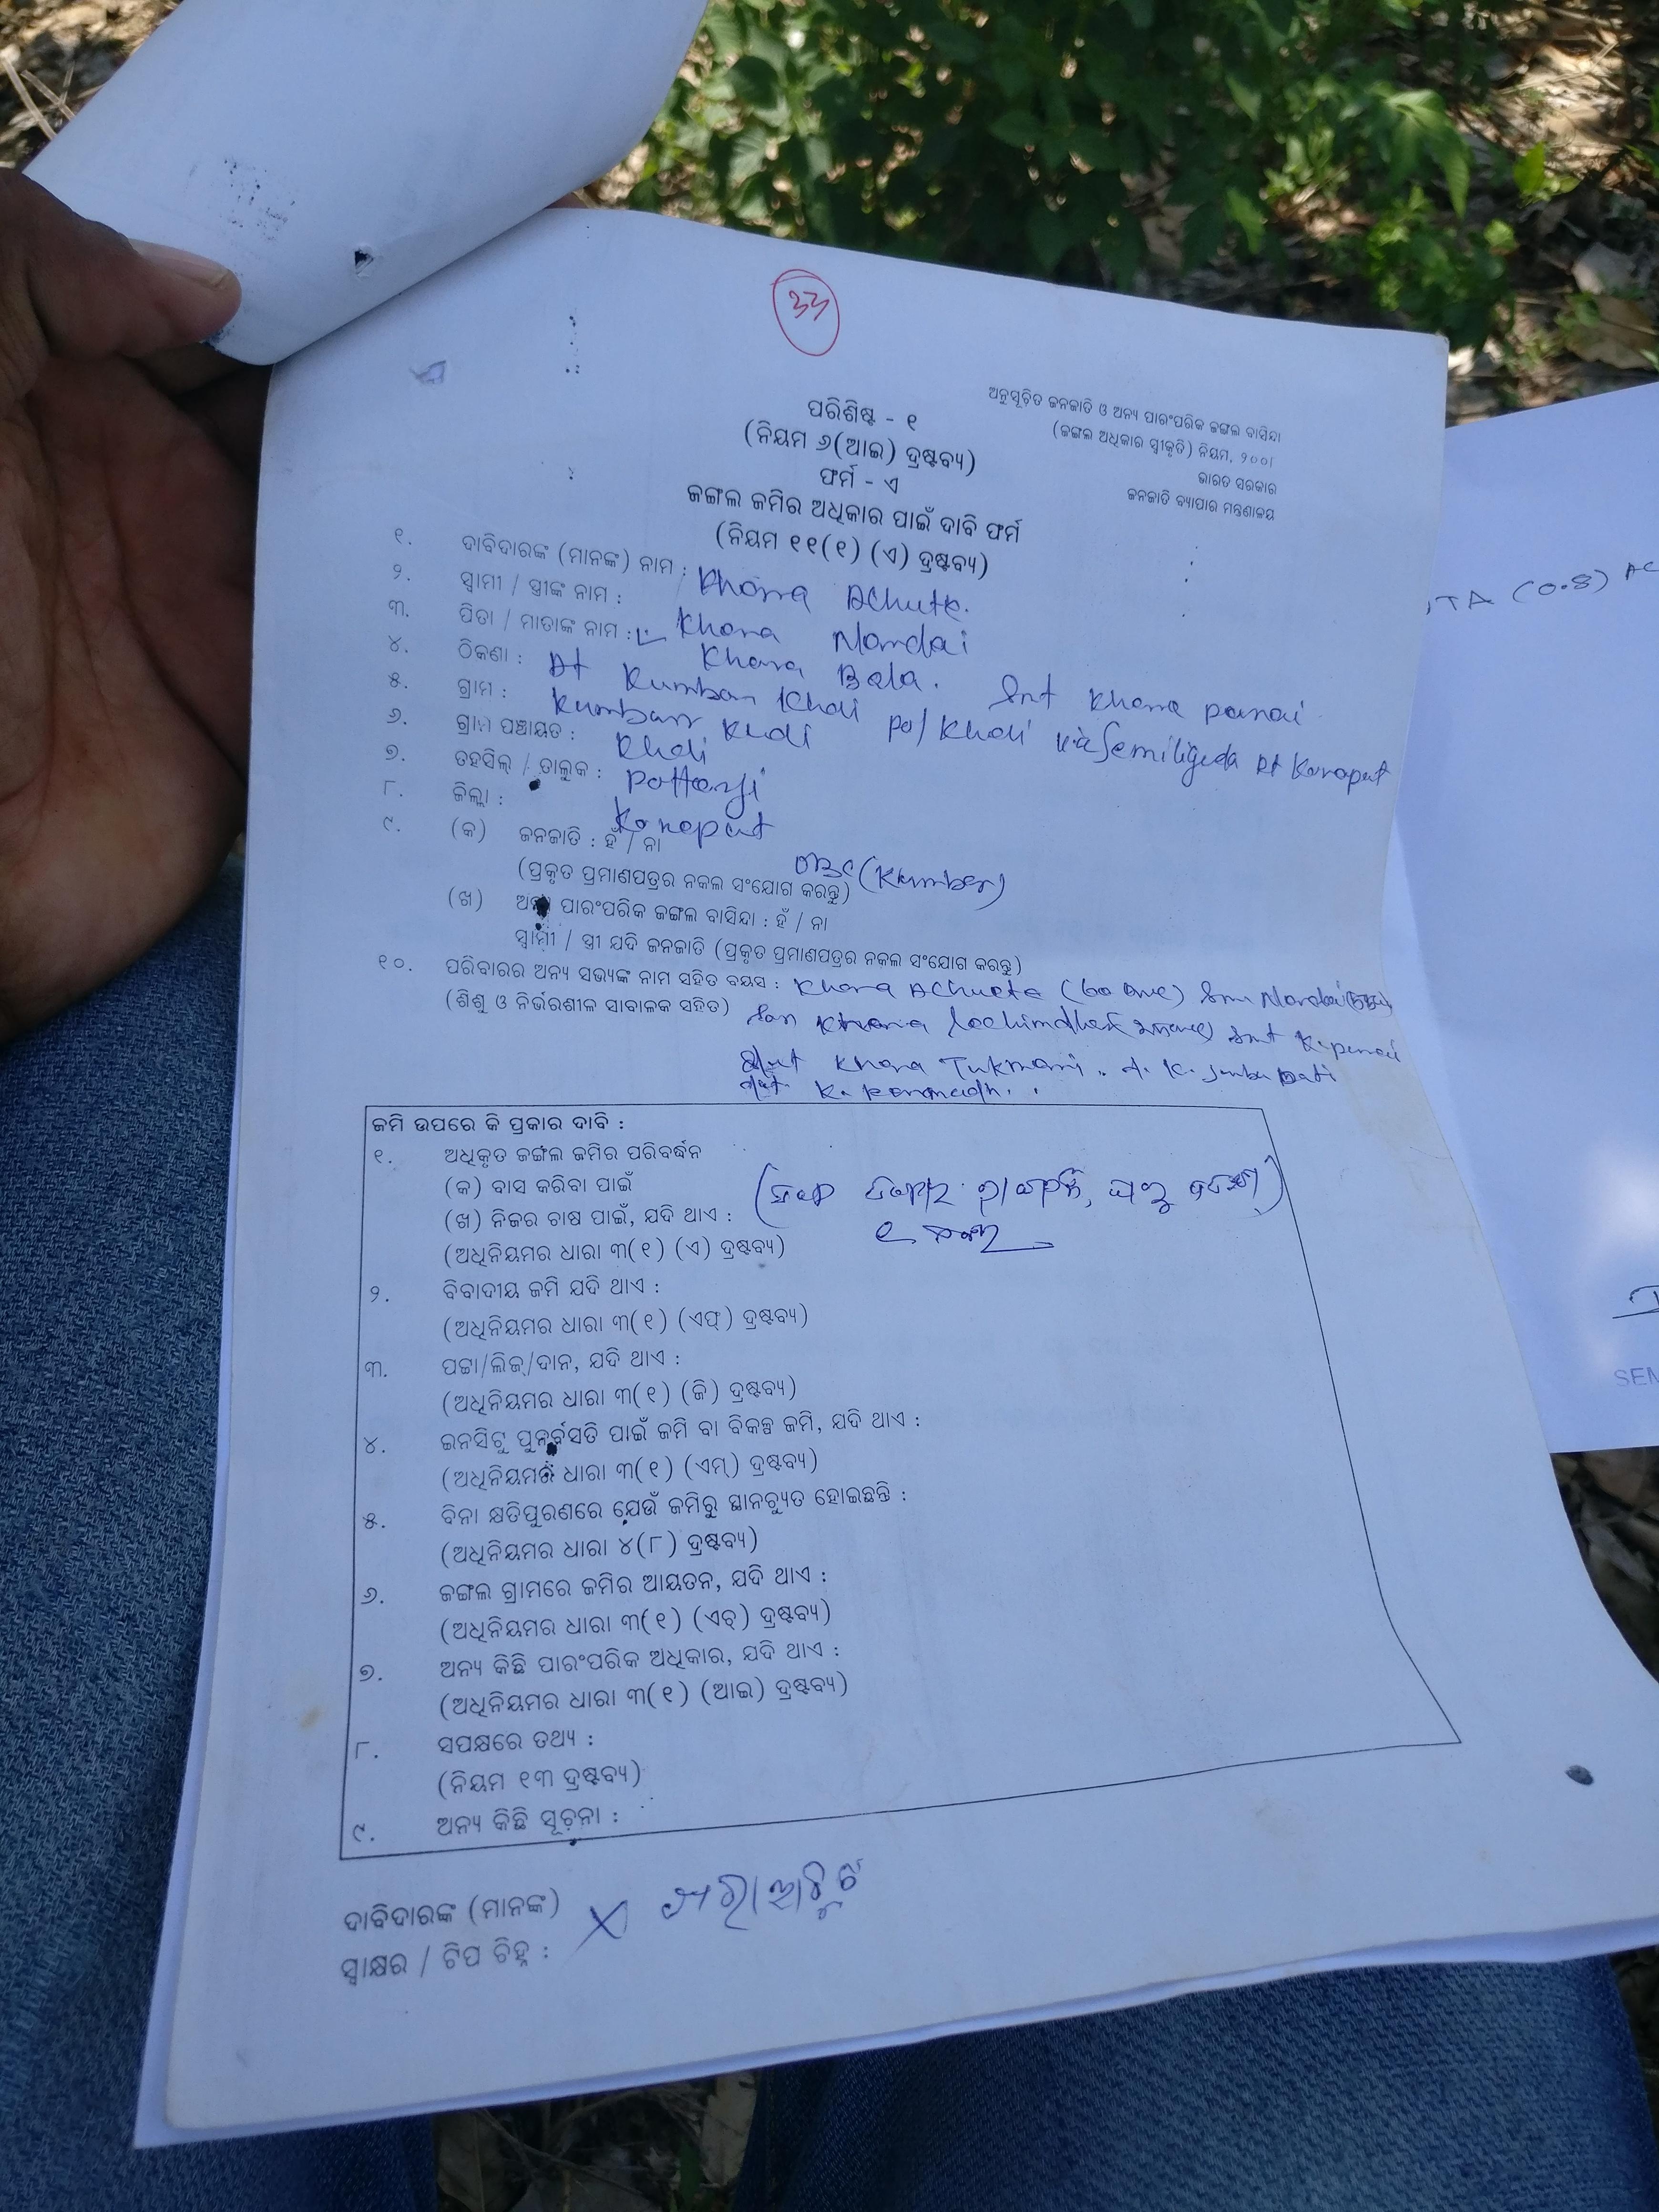 33
ଅନୁସୂଚିତ ଜନଜାତି ଓ ଅନ୍ୟ ପାରଂପରିକ ଜଙ୍ଗଲ ବାସିନ୍ଦା
(ଜଙ୍ଗଲ ଅଧିକାର ସ୍ୱୀକୃତି) ନିୟମ, ୨୦୦୮
ଭାରତ ସରକାର
ଜନଜାତି ବ୍ୟାପାର ମନ୍ତ୍ରଣାଳୟ
ପରିଶିଷ୍ଟ - ୧
(ନିୟମ ୬(ଆଇ) ଦ୍ରଷ୍ଟବ୍ୟ)
ଫର୍ମ - ଏ
ଜଙ୍ଗଲ ଜମିର ଅଧିକାର ପାଇଁ ଦାବି ଫର୍ମ
(ନିୟମ ୧୧(୧) (ଏ) ଦ୍ରଷ୍ଟବ୍ୟ)
୧. ଦାବିଦାରଙ୍କ (ମାନଙ୍କ) ନାମ : Khora Achute.
୨. ସ୍ୱାମୀ / ସ୍ତ୍ରୀଙ୍କ ନାମ : Khora Nandai
୩. ପିତା / ମାତାଙ୍କ ନାମ : L- Khora Bala. Smt Khora panai
୪. ଠିକଣା : At Kumbar Khali po/ Kholi via Semiliguda Dt Koraput
୫. ଗ୍ରାମ : Kumbar Kholi
୬. ଗ୍ରାମ ପଞ୍ଚାୟତ : Kholi
୭. ତହସିଲ୍ / ତାଲୁକ : Pottangi
୮. ଜିଲ୍ଲା : Koraput
୯. (କ) ଜନଜାତି : ହଁ / ନା OBC (Kumber)
(ପ୍ରକୃତ ପ୍ରମାଣପତ୍ରର ନକଲ ସଂଯୋଗ କରନ୍ତୁ)
(ଖ) ଅନ୍ୟ ପାରଂପରିକ ଜଙ୍ଗଲ ବାସିନ୍ଦା : ହଁ / ନା
ସ୍ୱାମୀ / ସ୍ତ୍ରୀ ଯଦି ଜନଜାତି (ପ୍ରକୃତ ପ୍ରମାଣପତ୍ରର ନକଲ ସଂଯୋଗ କରନ୍ତୁ)
୧୦. ପରିବାରର ଅନ୍ୟ ସଭ୍ୟଙ୍କ ନାମ ସହିତ ବୟସ : Khora Achuta (60
(ଶିଶୁ ଓ ନିର୍ଭରଶୀଳ ସାବାଳକ ସହିତ) Son Khora Smt K. panai
Khora Tukmani.
ଜମି ଉପରେ କି ପ୍ରକାର ଦାବି :
୧. ଅଧିକୃତ ଜଙ୍ଗଲ ଜମିର ପରିବର୍ଦ୍ଧନ
(କ) ବାସ କରିବା ପାଇଁ
(ଖ) ନିଜର ଚାଷ ପାଇଁ, ଯଦି ଥାଏ :
(ଅଧିନିୟମର ଧାରା ୩(୧) (ଏ) ଦ୍ରଷ୍ଟବ୍ୟ)
୨. ବିବାଦୀୟ ଜମି ଯଦି ଥାଏ :
(ଅଧିନିୟମର ଧାରା ୩(୧) (ଏଫ୍) ଦ୍ରଷ୍ଟବ୍ୟ)
୩. ପଟ୍ଟା/ଲିଜ୍/ଦାନ, ଯଦି ଥାଏ :
(ଅଧିନିୟମର ଧାରା ୩(୧) (ଜି) ଦ୍ରଷ୍ଟବ୍ୟ)
୪. ଇନସିଟୁ ପୁନର୍ବସତି ପାଇଁ ଜମି ବା ବିକଳ୍ପ ଜମି, ଯଦି ଥାଏ :
(ଅଧିନିୟମର ଧାରା ୩(୧) (ଏମ୍) ଦ୍ରଷ୍ଟବ୍ୟ)
୫. ବିନା କ୍ଷତିପୁରଣରେ ଯେଉଁ ଜମିରୁ ସ୍ଥାନଚ୍ୟୁତ ହୋଇଛନ୍ତି :
(ଅଧିନିୟମର ଧାରା ୪(୮) ଦ୍ରଷ୍ଟବ୍ୟ)
୬. ଜଙ୍ଗଲ ଗ୍ରାମରେ ଜମିର ଆୟତନ, ଯଦି ଥାଏ :
(ଅଧିନିୟମର ଧାରା ୩(୧) (ଏଚ୍) ଦ୍ରଷ୍ଟବ୍ୟ)
୭. ଅନ୍ୟ କିଛି ପାରଂପରିକ ଅଧିକାର, ଯଦି ଥାଏ :
(ଅଧିନିୟମର ଧାରା ୩(୧) (ଆଇ) ଦ୍ରଷ୍ଟବ୍ୟ)
୮. ସପକ୍ଷରେ ତଥ୍ୟ :
(ନିୟମ ୧୩ ଦ୍ରଷ୍ଟବ୍ୟ)
୯. ଅନ୍ୟ କିଛି ସୂଚନା :
ଦାବିଦାରଙ୍କ (ମାନଙ୍କ)
ସ୍ୱାକ୍ଷର / ଟିପ ଚିହ୍ନ :
(0.8) AC
SEM